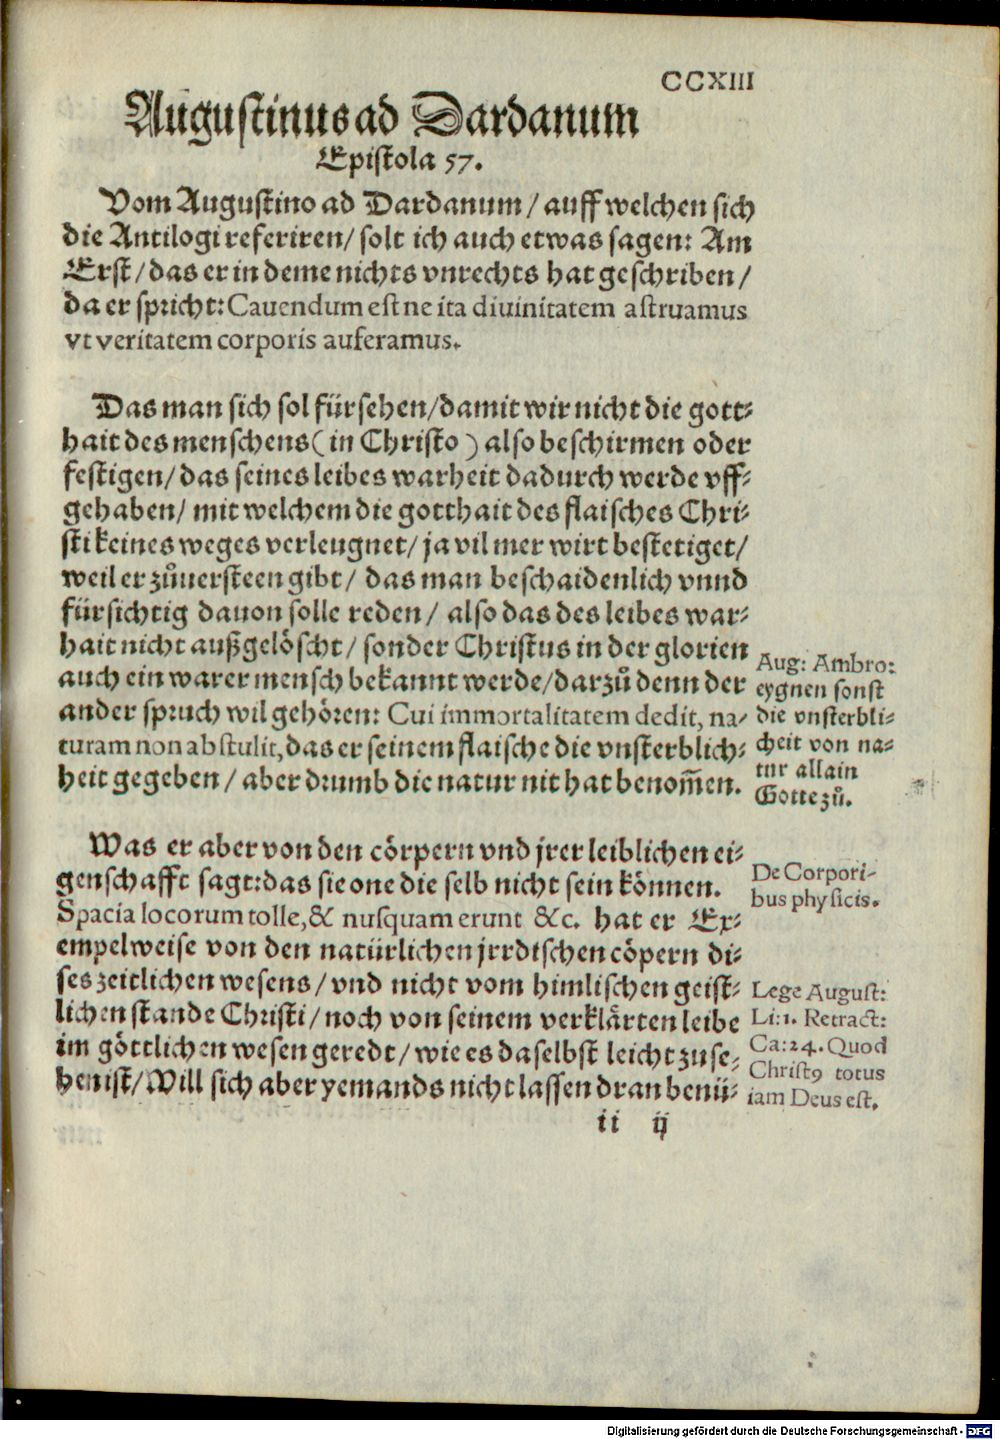 CCXIII
Augustinus ad Dardanum
Epistola 57.
Vom Augustino ad Dardanum / auff welchen sich
die Antilogi referiren / solt ich auch etwas sagen: Am
Erst / das er in deme nichts vnrechts hat geschriben /
da er spricht: Cauendum est ne ita diuinitatem astruamus
vt veritatem corporis auferamus.
Das man sich sol fürsehen / damit wir nicht die gott⸗
hait des menschens (in Christo) also beschirmen oder
festigen / das seines leibes warheit dadurch werde vff⸗
gehaben / mit welchem die gotthait des flaisches Chri⸗
sti keines weges verleugnet / ja vil mer wirt bestetiget /
weil er zůuersteen gibt / das man beschaidenlich vnnd
fürsichtig dauon solle reden / also das des leibes war⸗
hait nicht außgelöscht / sonder Christus in der glorien
auch ein warer mensch bekannt werde / darzů denn der
ander spruch wil gehören: Cui immortalitatem dedit, na⸗
turam non abstulit, das er seinem flaische die vnsterblich⸗
heit gegeben / aber drumb die natur nit hat benom̃en.
Aug: Ambro:
eygnen sonst
die vnsterbli⸗
cheit von na⸗
tur allain
Gotte zů.
Was er aber von den cörpern vnd jrer leiblichen ei⸗
genschafft sagt: das sie one die selb nicht sein können.
Spacia locorum tolle, & nusquam erunt &c. hat er Ex⸗
empelweise von den natürlichen jrrdischen cöpern di⸗
ses zeitlichen wesens / vnd nicht vom himlischen geist⸗
lichen stande Christi / noch von seinem verklärten leibe
im göttlichen wesen geredt / wie es daselbst leicht zuse⸗
hen ist / Will sich aber yemands nicht lassen dran benü⸗
De Corpori⸗
bus physicis.
Lege August:
Li: 1. Retract:
Ca: 24. Quod
Christ9 totus
iam Deus est.
ii ij
Digitalisierung gefördert durch die Deutsche Forschungsgemeinschaft - DFG